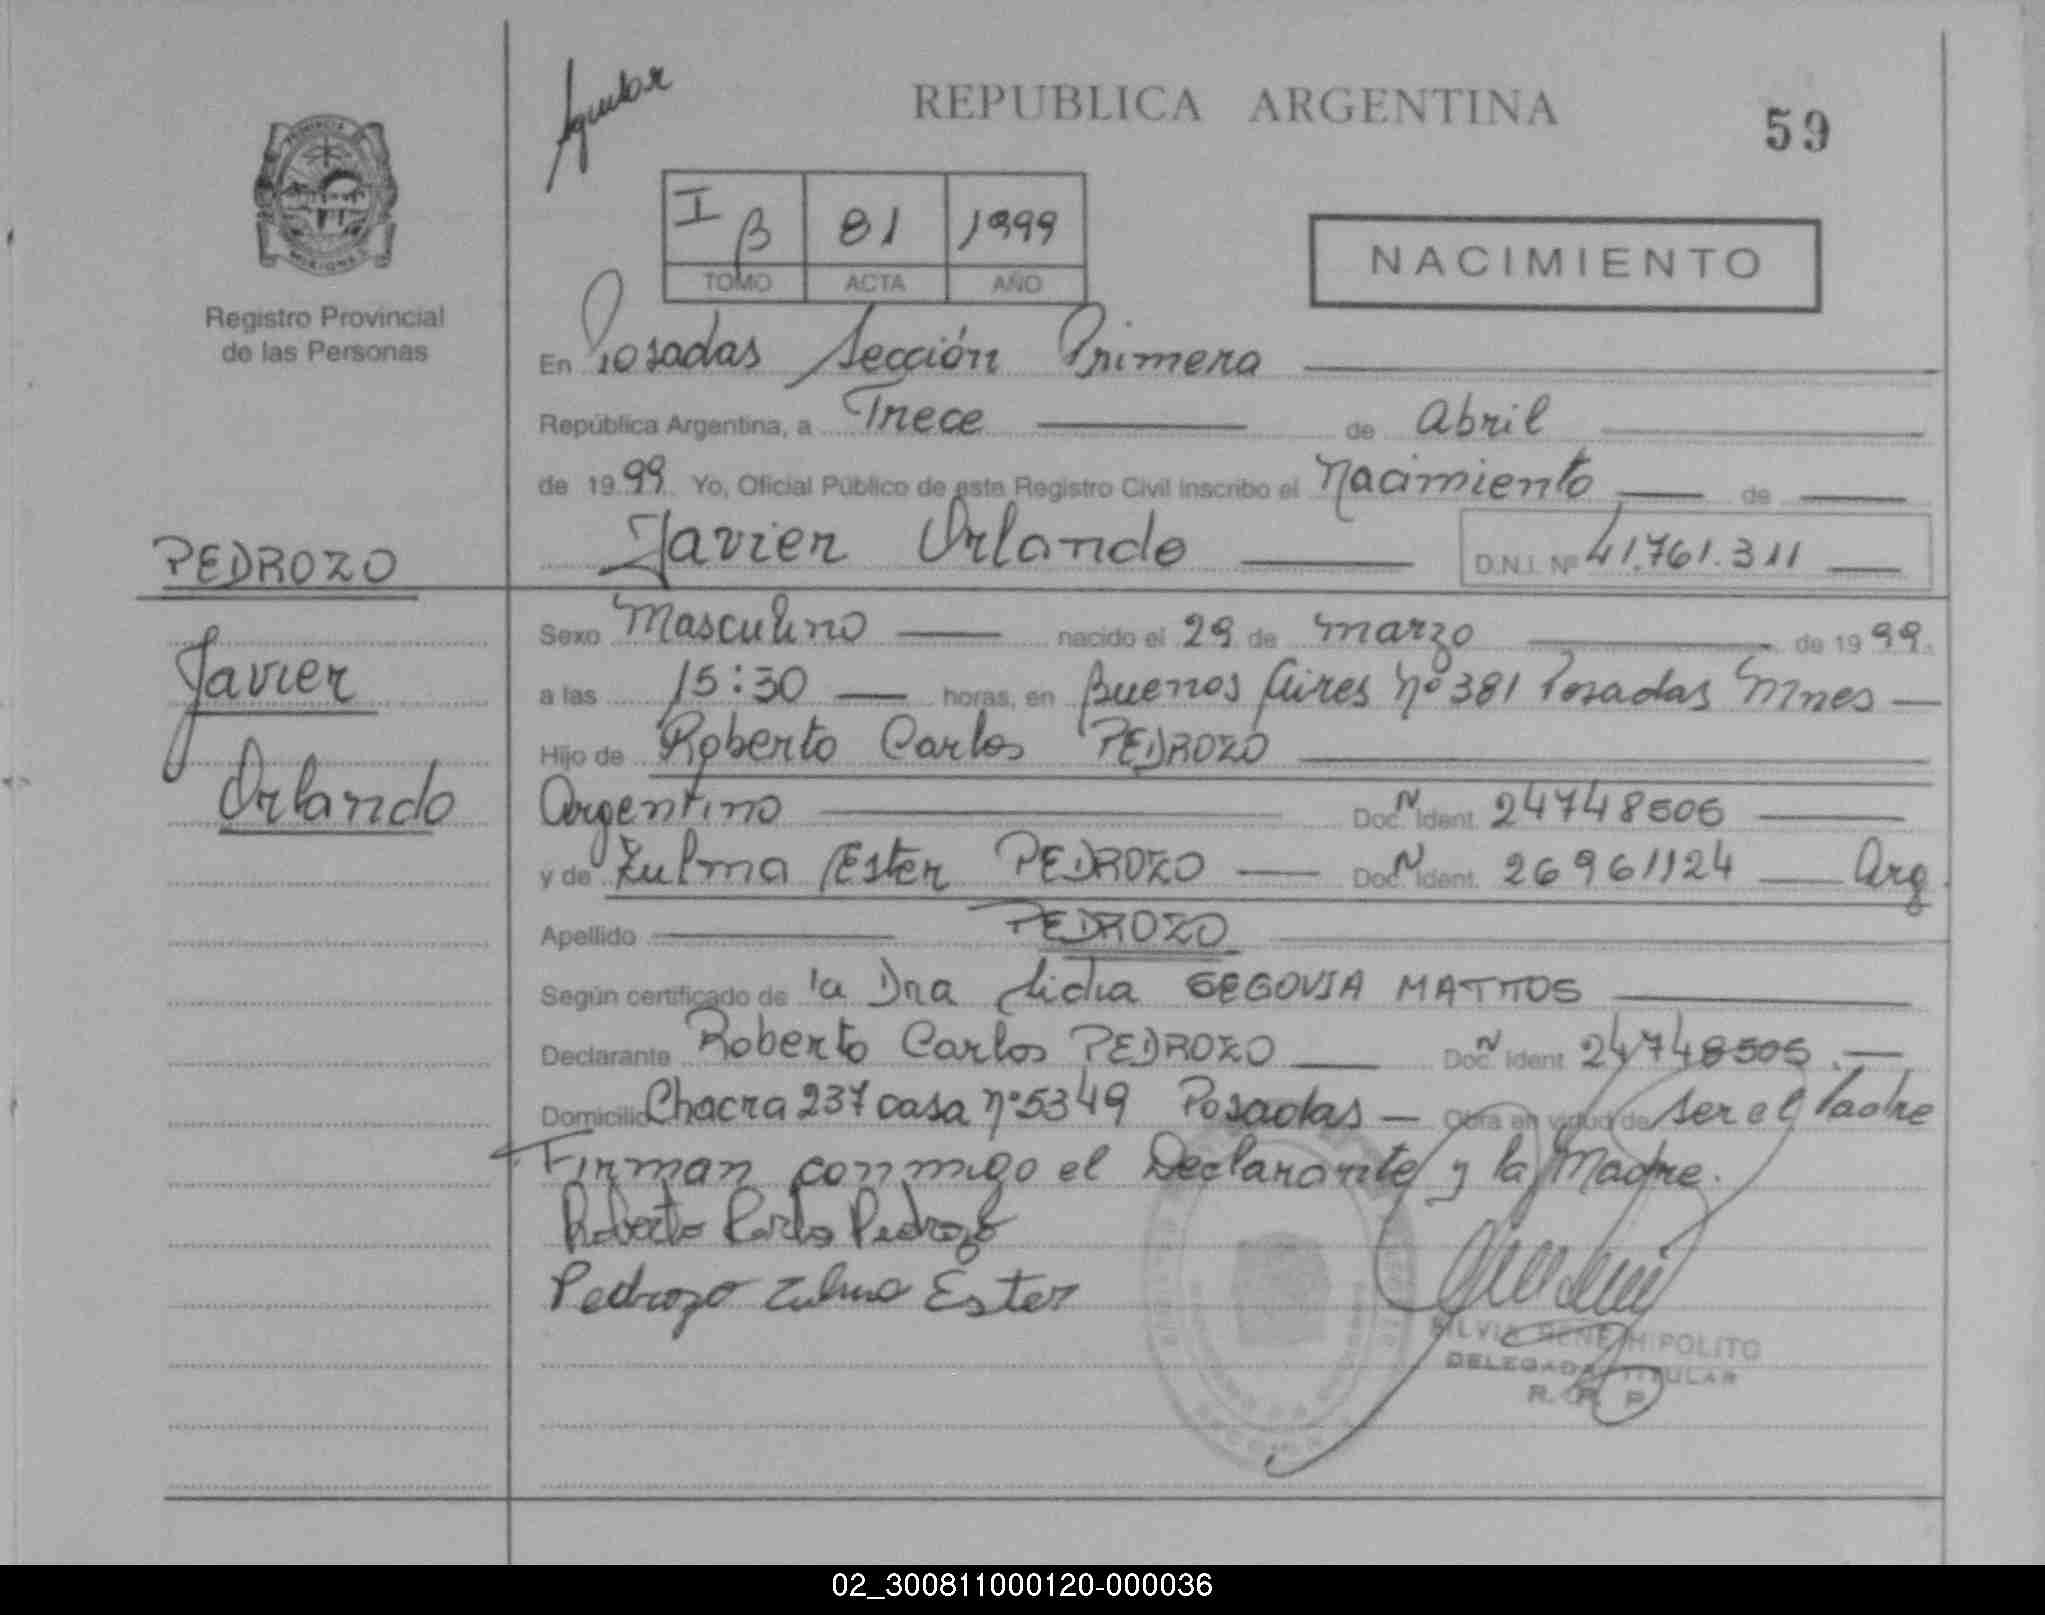 Aguilar
REPUBLICA ARGENTINA
59
PROVINCIA
MISIONES
Registro Provincial
de las Personas
I B 81 1999
TOMO ACTA AÑO
NACIMIENTO
En Posadas Sección Primera
República Argentina, a Trece de Abril
de 1999 Yo, Oficial Público de este Registro Civil inscribo el Nacimiento de
Javier Orlando D.N.I. Nº 41.761.311
PEDROZO
Javier
Orlando
Sexo Masculino nacido el 29 de marzo de 1999.
a las 15:30 horas, en Buenos Aires Nº 381 Posadas Mnes
Hijo de Roberto Carlos PEDROZO
Argentino Doc. N Ident. 24748505
y de Zulma Ester PEDROZO Doc. N Ident. 26961124 Arg.
Apellido PEDROZO
Según certificado de la Dra Lidia SEGOVIA MATTOS
Declarante Roberto Carlos PEDROZO Doc. N Ident 24748505.
Domicilio Chacra 237 casa nº 5349 Posadas Obra en virtud de ser el Padre
Firman conmigo el Declarante y la Madre.
Roberto Carlos Pedrozo
Pedrozo Zulma Ester
SILVIA RENE HIPOLITO
DELEGADA TITULAR
R. P. P.
02_300811000120-000036